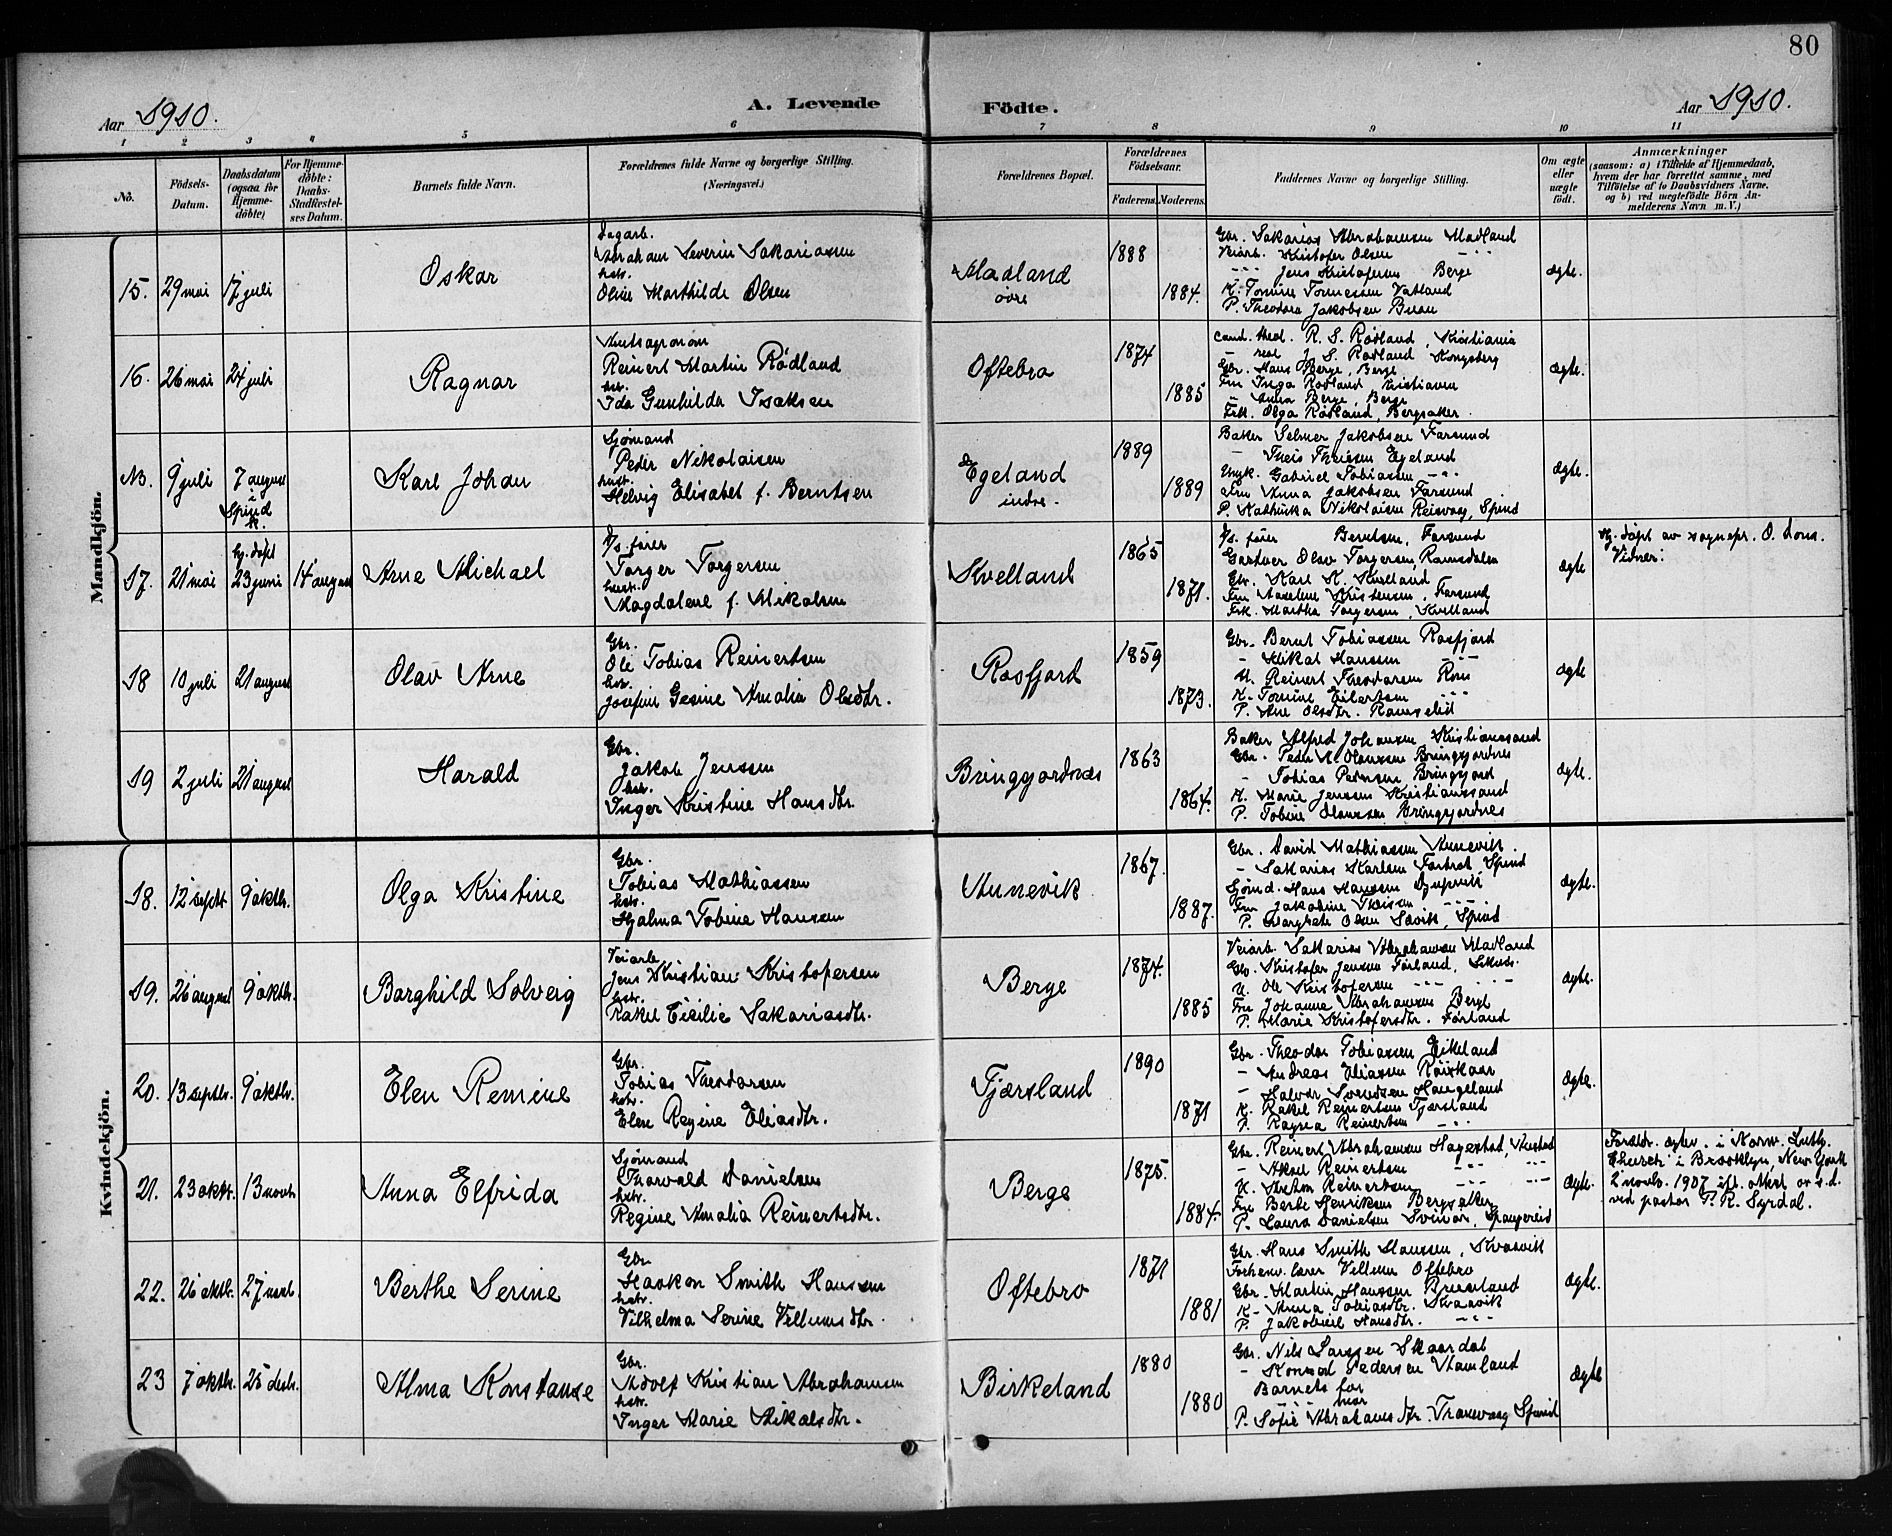 80
Aar 1910.
A. Levende Födte.
Aar 1910.
1 2 3 4 5 6 7 8 9 10 11
No.
Födsels-Datum.
Daabsdatum (ogsaa for Hjemmedöbte)
For Hjemmedöbte: Daabs-Stadfæstelses Datum.
Barnets fulde Navn.
Forældrenes fulde Navne og borgerlige Stilling. (Næringsvei.)
Forældrenes Bopæl.
Forældrenes Födselsaar.
Faderens. Moderens.
Faddernes Navne og borgerlige Stilling.
Om ægte eller uægte födt.
Anmærkninger
(saasom: a) i Tilfælde af Hjemmedaab, hvem der har forrettet samme, med Tilföielse af to Daabsvidners Navne, og b) ved uægtefödte Börn Anmelderens Navn m. V.)
Mandkjön.
15. 29 mai 17 juli
Oskar
Dagarb.
Abraham Severin Sakariassen
hstr.
Oline Marthilde Olsen
Madland
øvre
1888
1884.
Gbr. Sakarias Abrahamsen Madland
Veiarb. Kristofer Olsen
Jens Kristofersen Berge
K. Tomine Tonnessen Vatland
P. Theodora Jakobsen
ægte.
16. 26 mai 24 juli
Ragnar
Amtsagronom
Reinert Martin Rødland
hst.
Ida Gunhilda Isaksen
Oftebro
1874
1885
Cand. theol. R. S. Rødland, Kristiania
- real J. S. Rødland Kongsberg
Gbr. Hans Berge, Berge
Fru Inga Rødland, Kristiania
- Anna Berge, Berge
Frk. Olga Rødland, Bergsaker.
ægte.
N. 9 juli 7 august
i
Spind
k.
Karl Johan
Sjømand
Peder Nikolaisen
hust.
Helvig Elisabet f. Berntsen
Egeland
indre.
1889
1889
Baker Selmer Jakobsen Farsund
- Theis Theisen Egeland
Ungk. Gabriel Tobiassen
Fru Anna Jakobsen Farsund
P. Kathinka Nikolaisen Reisvaag, Spind
ægte.
17. 21 mai
hj. døpt
23 juni 14 august
Arne Michael
D/s. fører
Torger Torgersen
hust.
Magdalene f. Mikalsen
Kvelland
1865
1871.
D/s. fører Berntsen, Farsund
Gartner Olav Torgersen Ramsdalen
Gbr. Karl K. Kvelland
Fru Axeline Kristensen, Farsund
Frk. Martha Torgersen, Kvelland
ægte
Hj. døpt av sognepr. O. Dons.
Vidner:
18 10 juli 21 august
Olav Arne
Gbr.
Ole Tobias Reinertsen
hst.
Josefine Gesine Amalia Olsdtr.
Rosfjord
1859
1873.
Gbr. Bernt Tobiassen Rosfjord
- Mikal Hanssen
U. Reinert Theodorsen
K. Tomine Eilertsen
P. Ane Olsdtr. Ramslid
ægte
19 2 juli 21 august
Harald
Gbr.
Jakob Jenssen
hst.
Inger Kristine Hansdtr.
Bringsjordnes
1863
1864.
Baker Alfred Johansen Kristianssand
Gbr. Peder M. Olaussen Bringsjordnes
- Tobias Pedersen Bringsjord
K. Marie Jenssen Kristianssand
P. Tobine Olaussen Bringsjordnes
ægte.
Kvindekjön.
18. 12 septbr 9 oktbr.
Olga Kristine
Gbr.
Tobias Mathiassen
hst.
Hjalma Tobine Hansen
Aunevik
1867.
1887.
Gbr. David Mathiassen Aunevik.
- Sakarias Karlsen Spind
Sjømd. Hans Hanssen
Fru Jakobine Theisen
P. Margrete Olsen Spind
ægte.
19. 26 august 9 oktbr.
Borghild Solveig
Veiarb.
Jens Kristian Kristofersen
hst.
Rakel Cicilie Sakariasdtr.
Berge
1874.
1885
Veiarb. Sakarias Abrahamsen Madland
Gbr. Kristofer Jensen Førland,
U. Ole Kristofersen
Fru Johanne Abrahamsen Berge
P. Marie Kristofersdtr. Førland
ægte.
20. 13 septbr. 9 oktbr.
Elen Remine
Gbr.
Tobias Theodorsen
hst.
Elen Regine Eliasdtr.
Tjærsland
1890
1871
Gbr. Theodor Tobiassen Eikeland
- Andreas Eliassen Røiskaar
- Halvor Svendsen Haugeland
K. Rakel Reinertsen Tjærsland
P. Reinertsen
ægte.
21. 23 oktbr. 13 novbr.
Anna Elfrida
Sjømand
Thorvald Danielsen
hstr.
Regine Amalia Reinertsdtr.
Berge
1875.
1884.
Gbr. Reinert Abrahamsen Hagestad,
- Aksel Reinertsen
U. Reinertsen
Fru Berte Henriksen Bergsaker
P. Laura Danielsen Svinør, Spangereid
ægte.
Foreldr. egtev. i Norw. Luth.
Church i Brooklyn, New York
2 novb. 1907 ifl. attest av s.d.
ved pastor T. R. Syrdal.
22. 26 oktbr. 27 novb.
Berthe Serine
Gbr
Haakon Smith Hanssen
hstr.
Vilhelma Serine Villumsdtr.
Oftebro
1871
1881
Gbr. Hans Smith Hanssen, Kvavik
Forhenv. lærer Villum Oftebro
Gbr. Martin Hanssen
K. Anna Tobiasdtr. Kvaavik
P. Jakobine Hansdtr.
ægte.
23 7 oktbr. 25 desbr.
Alma Konstanse
Gbr.
Adolf Kristian Abrahamsen
hstr.
Inger Marie Mikalsdtr.
Birkeland
1880
1880
Gbr. Nils Larssen Skaardal
- Konrad Pedersen Aamland
Barnets far
mor
P. Sofie Abrahamsdtr. Spind
ægte